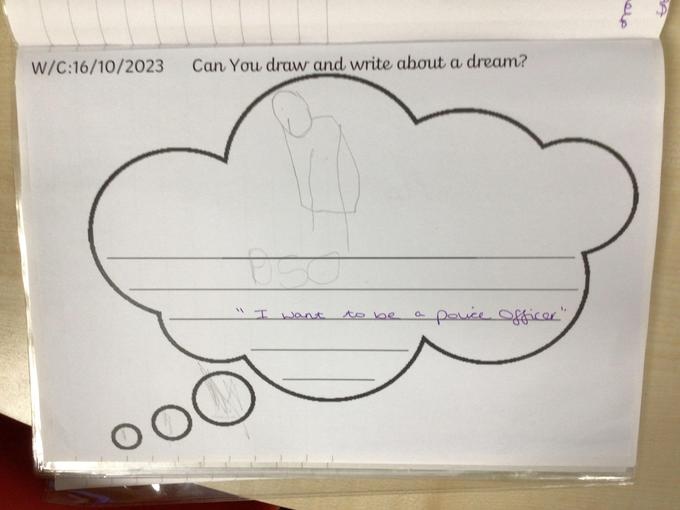 W/C:16/10/2023 Can You draw and write about a dream?
" I want to be a police officer"